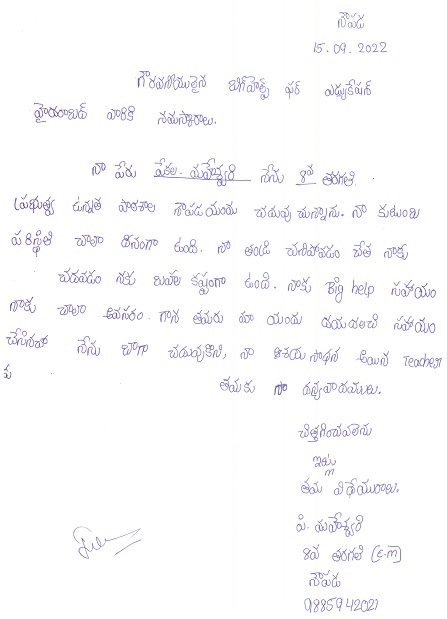 నౌపడ
15.09.2022
గౌరవనీయులైన బిగ్‌హెల్ప్ ఫర్ ఎడ్యుకేషన్
హైదరాబాద్ వారికి నమస్కారాలు.
నా పేరు పేకల. మహేశ్వరి నేను 8వ తరగతి
ప్రభుత్వ ఉన్నత పాఠశాల నౌపడయందు చదువు చున్నాను. నా కుటుంబ
పరిస్థితి చాలా దీనంగా ఉంది. నా తండ్రి చనిపోవడం చేత నాకు
చదవడం నకు బహుల కష్టంగా ఉంది. నాకు Big help సహాయం
నాకు చాలా అవసరం. గాన తమరు మా యందు దయదలచి సహాయం
చేసినచో నేను బాగా చదువుకొని, నా ఆశయ సాధన అయిన Teacherగా
తమకు నా ధన్యవాదములు.
చిత్తగించవలెను
ఇట్లు
తమ విధేయురాలు.
పి. మహేశ్వరి
8వ తరగతి (E.M)
నౌపడ
9885942021